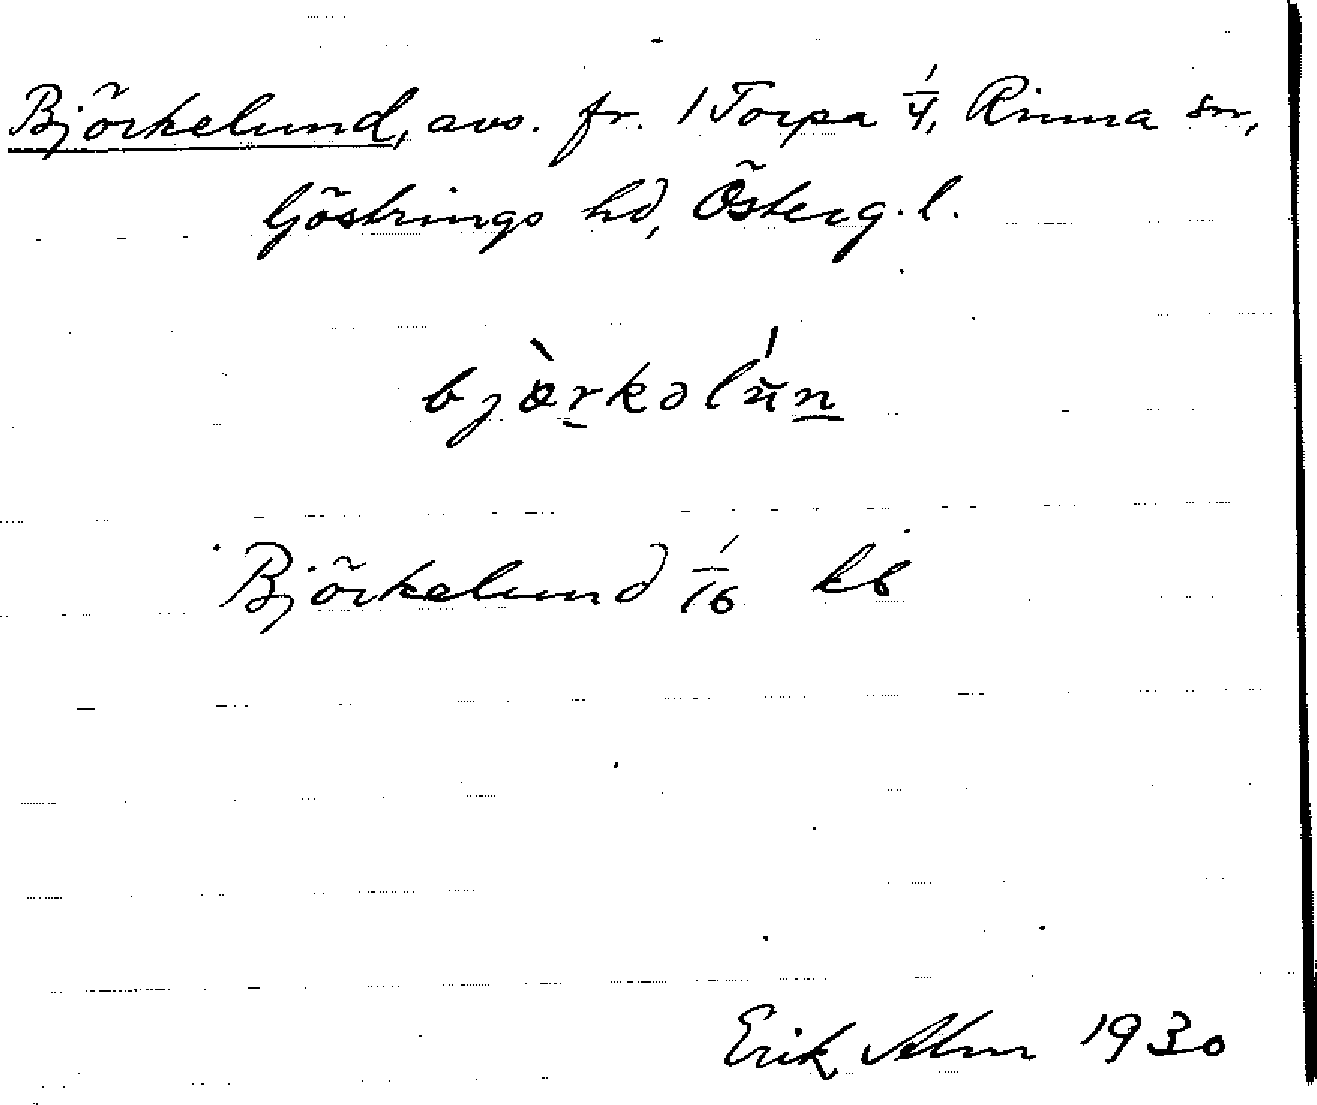 Björkelund, avs. fr. 1 Torpa 1/4, Rinna sn,
Göstrings hd, Österg. l.
bjærkəlun
Björkelund 1/16 kb
Erik Alm 1930